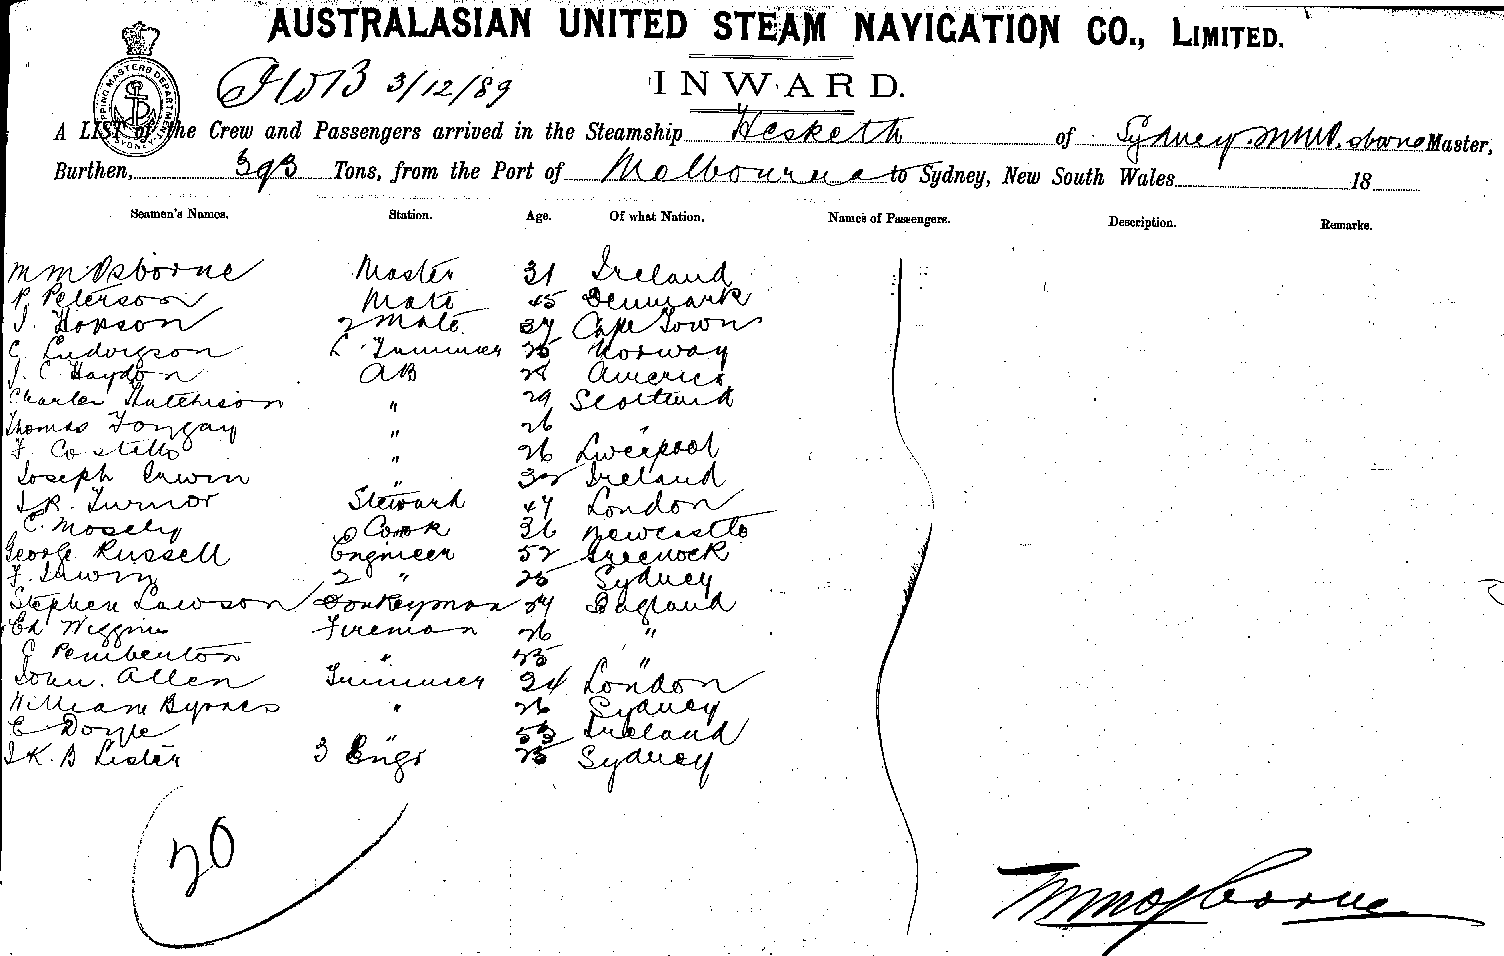 AUSTRALASIAN UNITED STEAM NAVIGATION CO., LIMITED.
3/12/89 INWARD.
A LIST of the Crew and Passengers arrived in the Steamship Hesketh of Sydney. M M Osborne Master,
Burthen, 393 Tons, from the Port of Melbourne to Sydney, New South Wales 18
Seamen's Names. Station. Age. Of what Nation. Names of Passengers. Description. Remarks.
M M Osborne Master 31 Ireland
P. Peterson Mate 45 Denmark
J. Hopson 2 Mate 37 Cape Town
C Ludvigson L Trimmer 25 Norway
J. C Haydon AB 28 America
Charles Hutchison " 29 Scotland
Thomas Fongay " 26
F. Costello " 26 Liverpool
Joseph Irwin " 32 Ireland
J R. Turnor Steward 47 London
C. Mosely Cook 36 Newcastle
George Russell Engineer 52 Greenock
F. 2 " 25 Sydney
Stephen Lawson Donkeyman 34 England
Ed Wiggins Fireman 26 "
C Pemberton " 25 "
John Allen Trimmer 24 London
William Byrnes " 26 Sydney
C Doyle 53 Ireland
J K. B Lister 3 Engr 25 Sydney
20
M M Osborne
SHIPPING MASTERS DEPARTMENT
SYDNEY